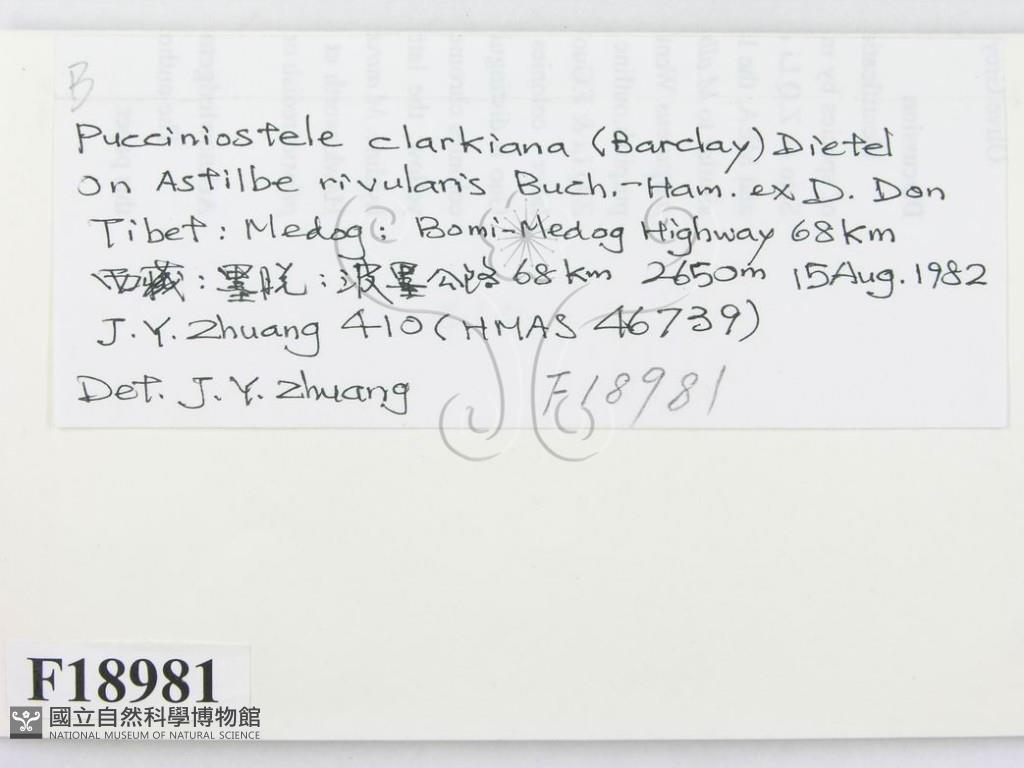 B
Pucciniostele clarkiana (Barclay) Dietel
on Astilbe rivularis Buch.-Ham. ex D. Don
Tibet: Medog: Bomi-Medog Highway 68km
西藏:墨脱:波墨公路 68km 2650m 15Aug.1982
J.Y.Zhuang 410(HMAS 46739)
Det. J.Y.Zhuang F18981
F18981
國立自然科學博物館
NATIONAL MUSEUM OF NATURAL SCIENCE